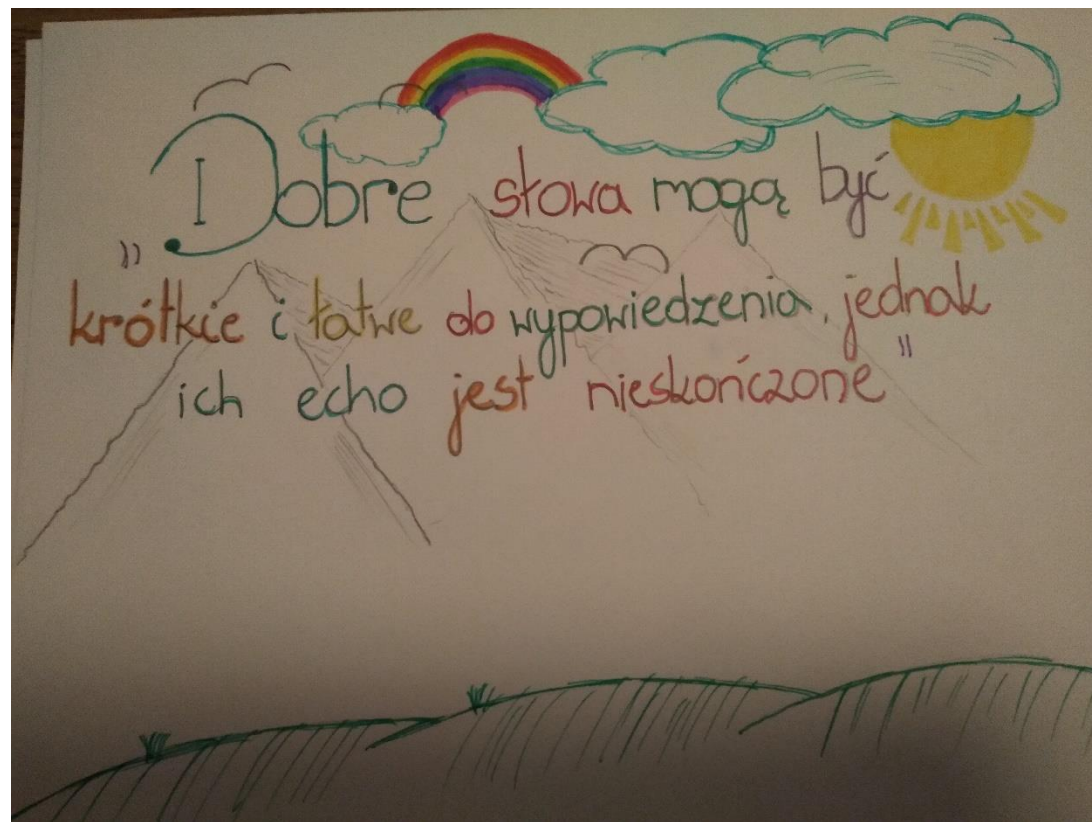 „Dobre słowa mogą być
krótkie i łatwe do wypowiedzenia, jednak
ich echo jest nieskończone"